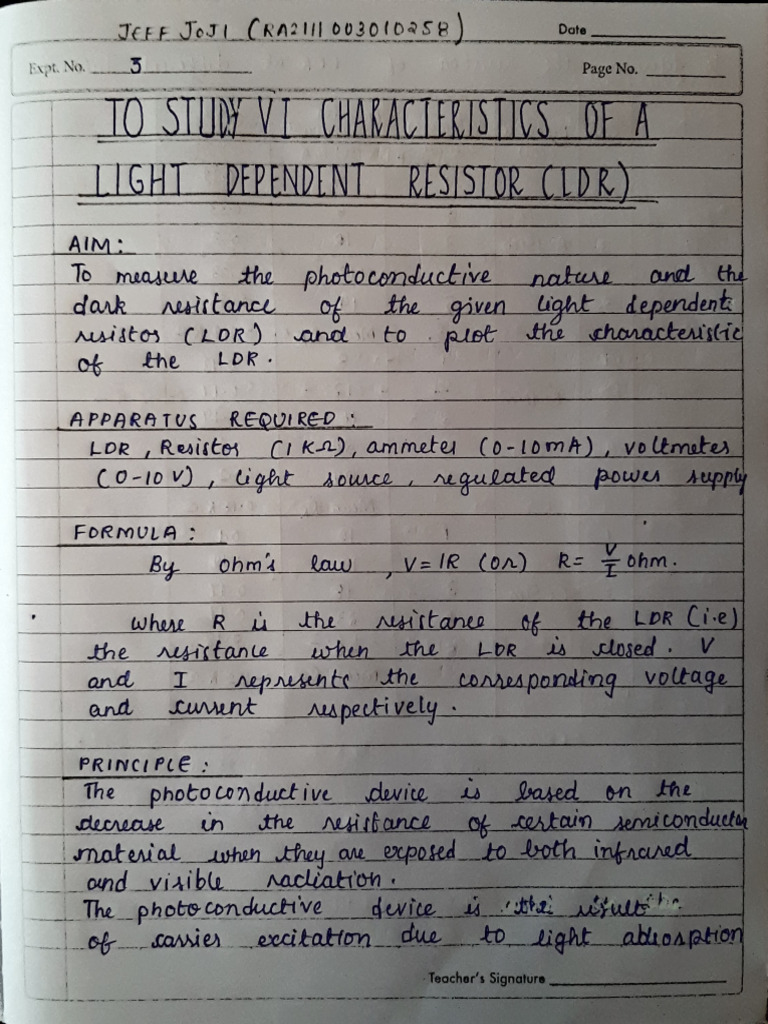 JEFF JOJI (RA2111003010258)
Date
Expt. No. 3
Page No.
TO STUDY VI CHARACTERISTICS OF A
LIGHT DEPENDENT RESISTOR (LDR)
AIM:
To measure the photoconductive nature and the
dark resistance of the given light dependent
resistor (LDR) and to plot the characteristic
of the LDR.
APPARATUS REQUIRED:
LDR, Resistor (1 KΩ), ammeter (0-10mA), voltmeter
(0-10 V), light source, regulated power supply
FORMULA:
By ohm's law, V=IR (or) R= V/I ohm.
where R is the resistance of the LDR (i.e)
the resistance when the LDR is closed. V
and I represents the corresponding voltage
and current respectively.
PRINCIPLE:
The photoconductive device is based on the
decrease in the resistance of certain semiconductor
material when they are exposed to both infrared
and visible radiation.
The photoconductive device is the result
of carrier excitation due to light absorption
Teacher's Signature